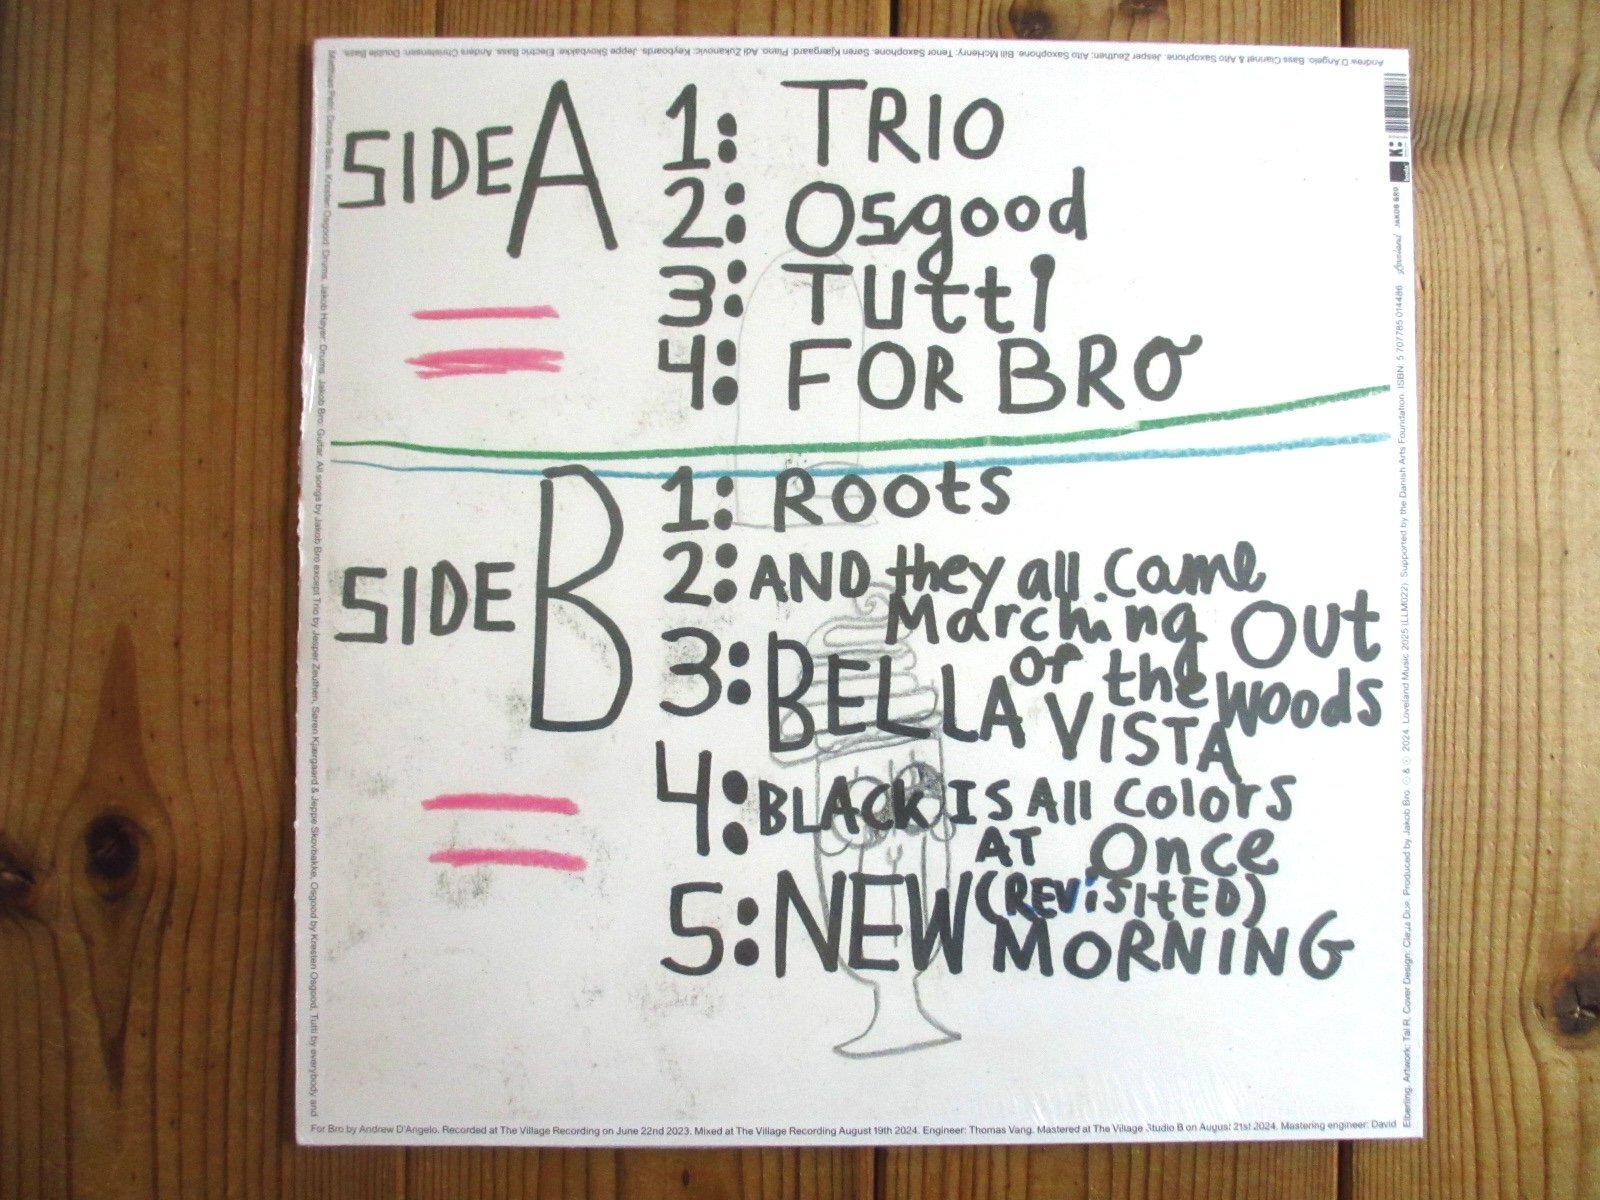 Andrew D'Angelo: Bass Clarinet & Alto Saxophone. Jesper Zeuthen: Alto Saxophone. Bill McHenry: Tenor Saxophone. Søren Kjærgaard: Piano. Adi Zukanovic: Keyboards. Jeppe Skovbakke: Electric Bass. Anders Christensen: Double Bass.
SIDE A
1: TRIO
2: Osgood
3: TUttI
4: FOR BRO
SIDE B
1: Roots
2: AND they all Came
Marching Out
of the Woods
3: BELLA VISTA
4: BLACK IS All Colors
AT Once
5: NEW MORNING
(REViSItED)
Thomas Petri: Double Bass. Kresten Osgood: Drums. Jakob Høyer: Drums. Jakob Bro: Guitar. All songs by Jakob Bro except Trio by Jesper Zeuthen, Søren Kjærgaard & Jeppe Skovbakke, Osgood by Kresten Osgood, Tutti by everybody and
For Bro by Andrew D'Angelo. Recorded at The Village Recording on June 22nd 2023. Mixed at The Village Recording August 19th 2024. Engineer: Thomas Vang. Mastered at The Village Studio B on August 21st 2024. Mastering engineer: David
Elberling. Artwork: Tal R. Cover Design: Produced by Jakob Bro. ℗ & © 2024. Loveland Music 2025 (LLM022) Supported by the Danish Arts Foundation. ISBN: 5 707785 014486
Loveland
JAKOB BRO
K: